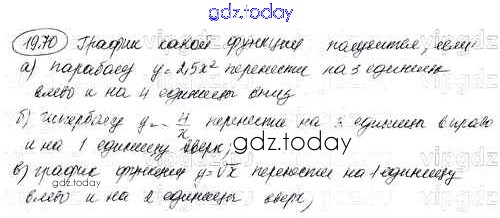 gdz.today
19.70 График какой функции получится, если:
а) параболу y = 2,5x² перенести на 3 единицы
влево и на 4 единицы вниз
б) гиперболу y = -4/x перенести на 3 единицы вправо
и на 1 единицу вверх;
gdz.today
в) график функции y = √x перенести на 1 единицу
влево и на 2 единицы вверх;